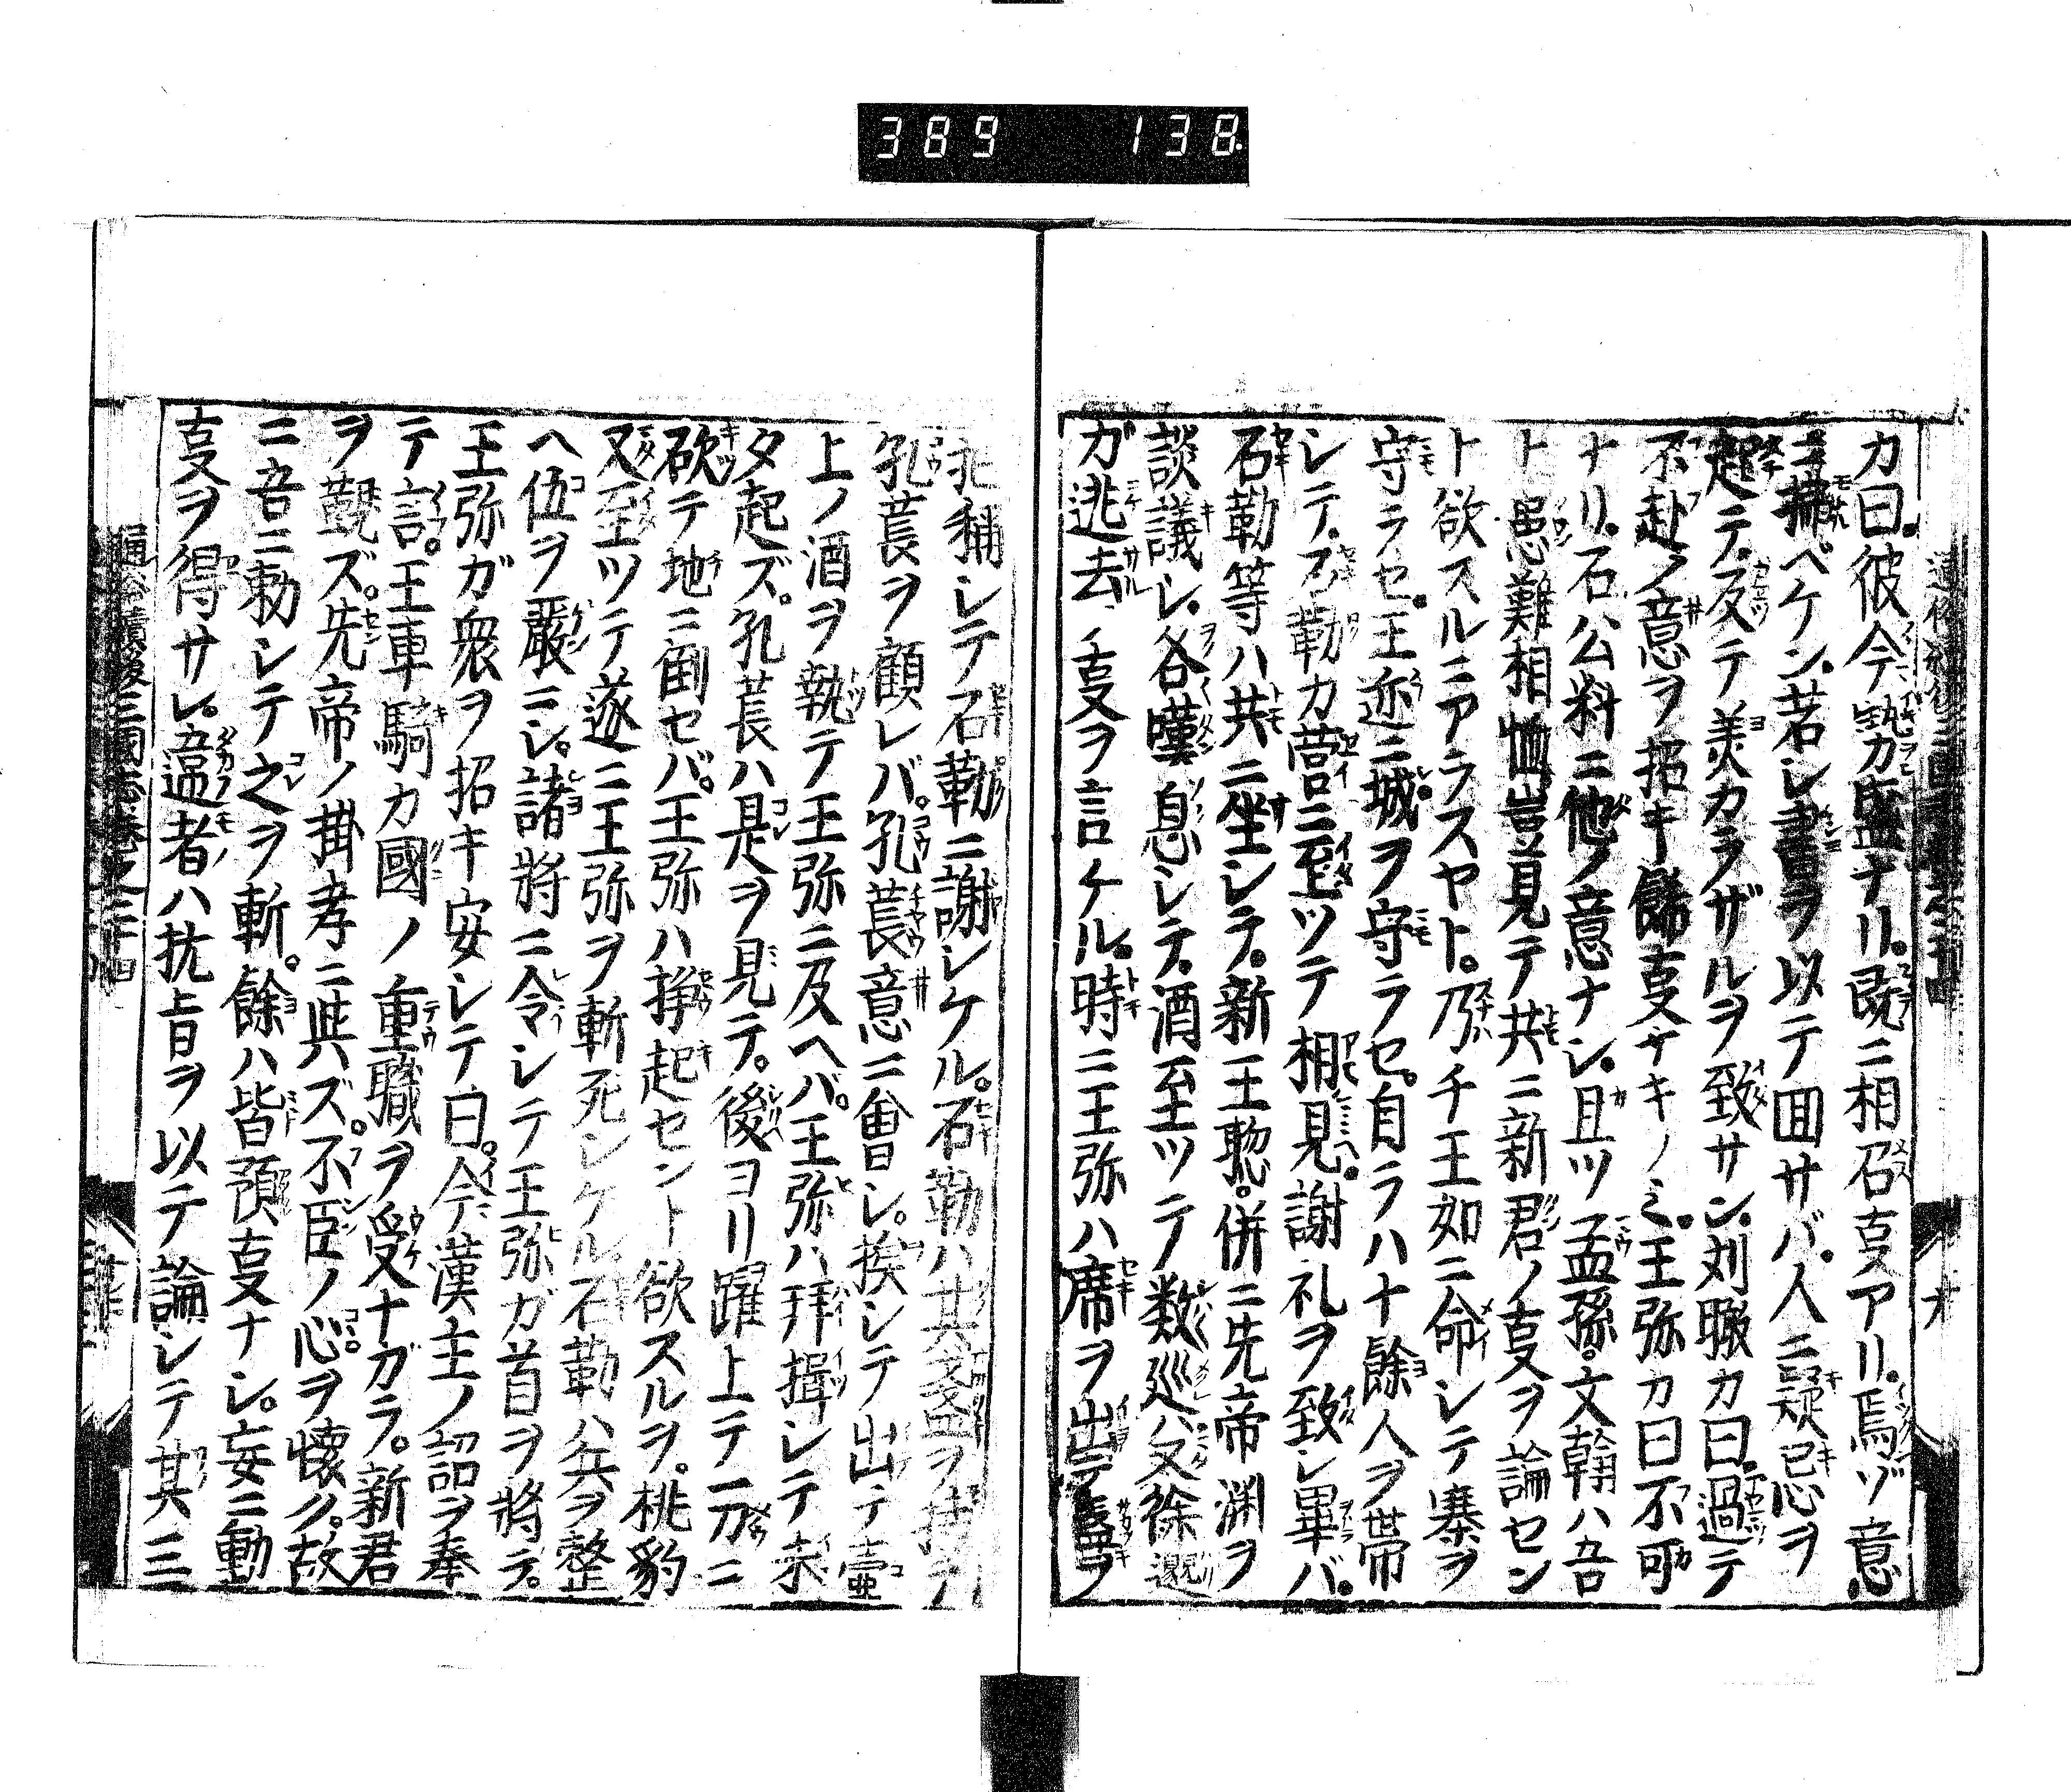 389 138
カ曰。彼今勢力盛ナリ。既ニ相召叓アリ。焉ゾ意。
ニ挿ベケン。若シ書ヲ以テ囬サバ。人ニ疑忌ヲ
起テ。反テ羙カラザルヲ致サン。刘暾カ曰。過テ
不赴ノ意ヲ招キ餙叓ナキノミ。王弥カ曰不可
ナリ。石公料ニ他ノ意ナシ。且ツ孟孫。文翰ハ吾
ト患難相恤豈見テ共ニ新君ノ叓ヲ論セン
ト欲スルニアラスヤト。乃チ王如ニ命シテ寨ヲ
守ラセ。王迩ニ城ヲ守ラセ。自ラハ十餘人ヲ帯
シテ。石勒カ営ニ至ツテ相見。謝礼ヲ致シ畢バ。
石勒等ハ共ニ坐シテ。新王聦。併ニ先帝渊ヲ
談議シ。各嘆息シテ。酒至ツテ数巡ハ。又徐邈
ガ逃去、叓ヲ言ケル。時ニ王弥ハ席ヲ出テ
孔稱シテ石勒ニ謝シケル。石勒ハ其盃ヲ持テ
孔萇ヲ顧レバ。孔萇意ニ會シ。挨シテ出テ壷
上ノ酒ヲ執テ王弥ニ及ヘバ。王弥ハ拜揖シテ未
タ起ズ。孔萇ハ是ヲ見テ。後ヨリ躍上テ一刀ニ
砍テ地ニ倒セバ。王弥ハ掙起セント欲スルヲ。桃豹
又至ツテ遂ニ王弥ヲ斬死シケル石勒ハ兵ヲ整
ヘ伍ヲ嚴ニシ。諸將ニ令シテ王弥ガ首ヲ將テ。
王弥ガ衆ヲ招キ安シテ曰。今漢主ノ詔ヲ奉
テ言。王車騎カ國ノ重職ヲ受ナガラ。新君
ヲ覲ズ。先帝ノ掛孝ニ與ズ。不臣ノ心ヲ懐ク。故
ニ吾ニ勅シテ之ヲ斬。餘ハ皆預叓ナシ。妄ニ動
叓ヲ得サレ。違者ハ抗旨ヲ以テ論シテ其三